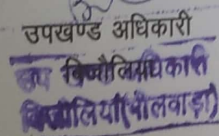 उपखण्ड अधिकारी
उप जिलाधिकारी
बिजौलियाँ(भीलवाड़ा)